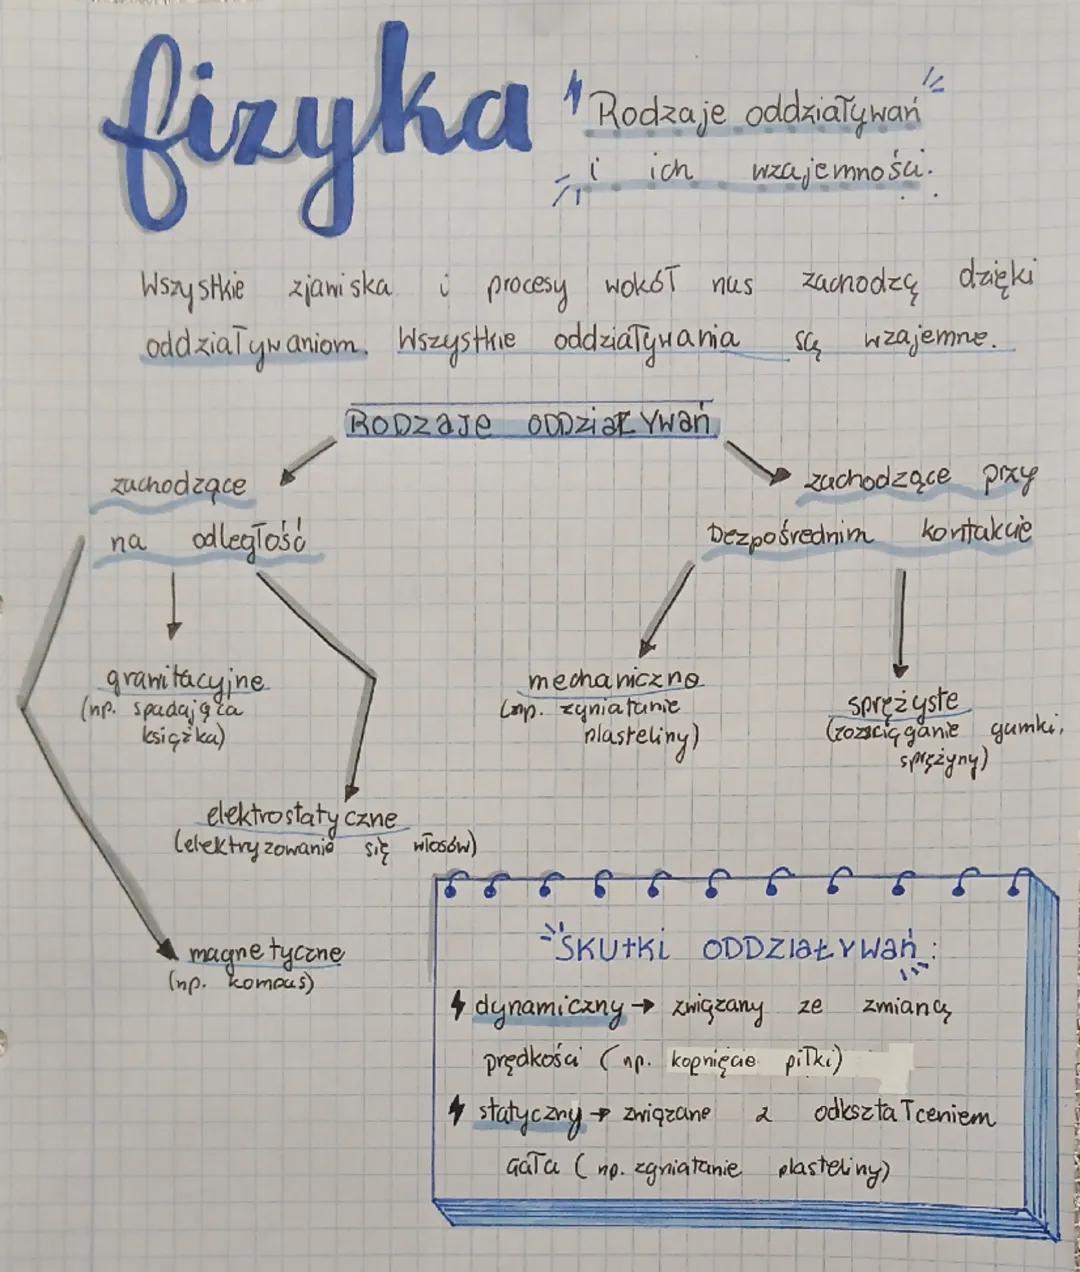 fizyka
Rodzaje oddziaływań
i ich wzajemności.
Wszystkie zjawiska i procesy wokół nas zachodzą dzięki
oddziaływaniom. Wszystkie oddziaływania są wzajemne.
RODZAJE ODDZIAŁYWAŃ
zachodzące
na odległość
zachodzące przy
bezpośrednim kontakcie
grawitacyjne
(np. spadająca
książka)
mechaniczne
(np. zgniatanie
plasteliny)
sprężyste
(rozciąganie gumki,
sprężyny)
elektrostatyczne
(elektryzowanie się włosów)
magnetyczne
(np. kompas)
SKUTKI ODDZIAŁYWAŃ:
dynamiczny → związany ze zmianą
prędkości (np. kopnięcie piłki)
statyczny → związane z odkształceniem
ciała (np. zgniatanie plasteliny)